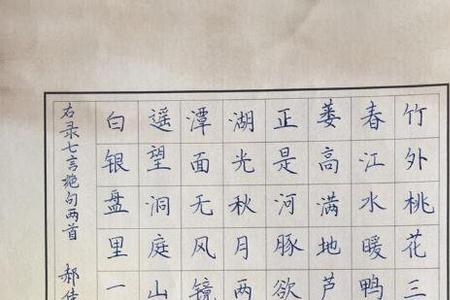 竹外桃花三
春江水暖鸭
蒌高满地芦
正是河豚欲
湖光秋月两
潭面无风镜
遥望洞庭山
白银盘里一
右录七言绝句两首 郝